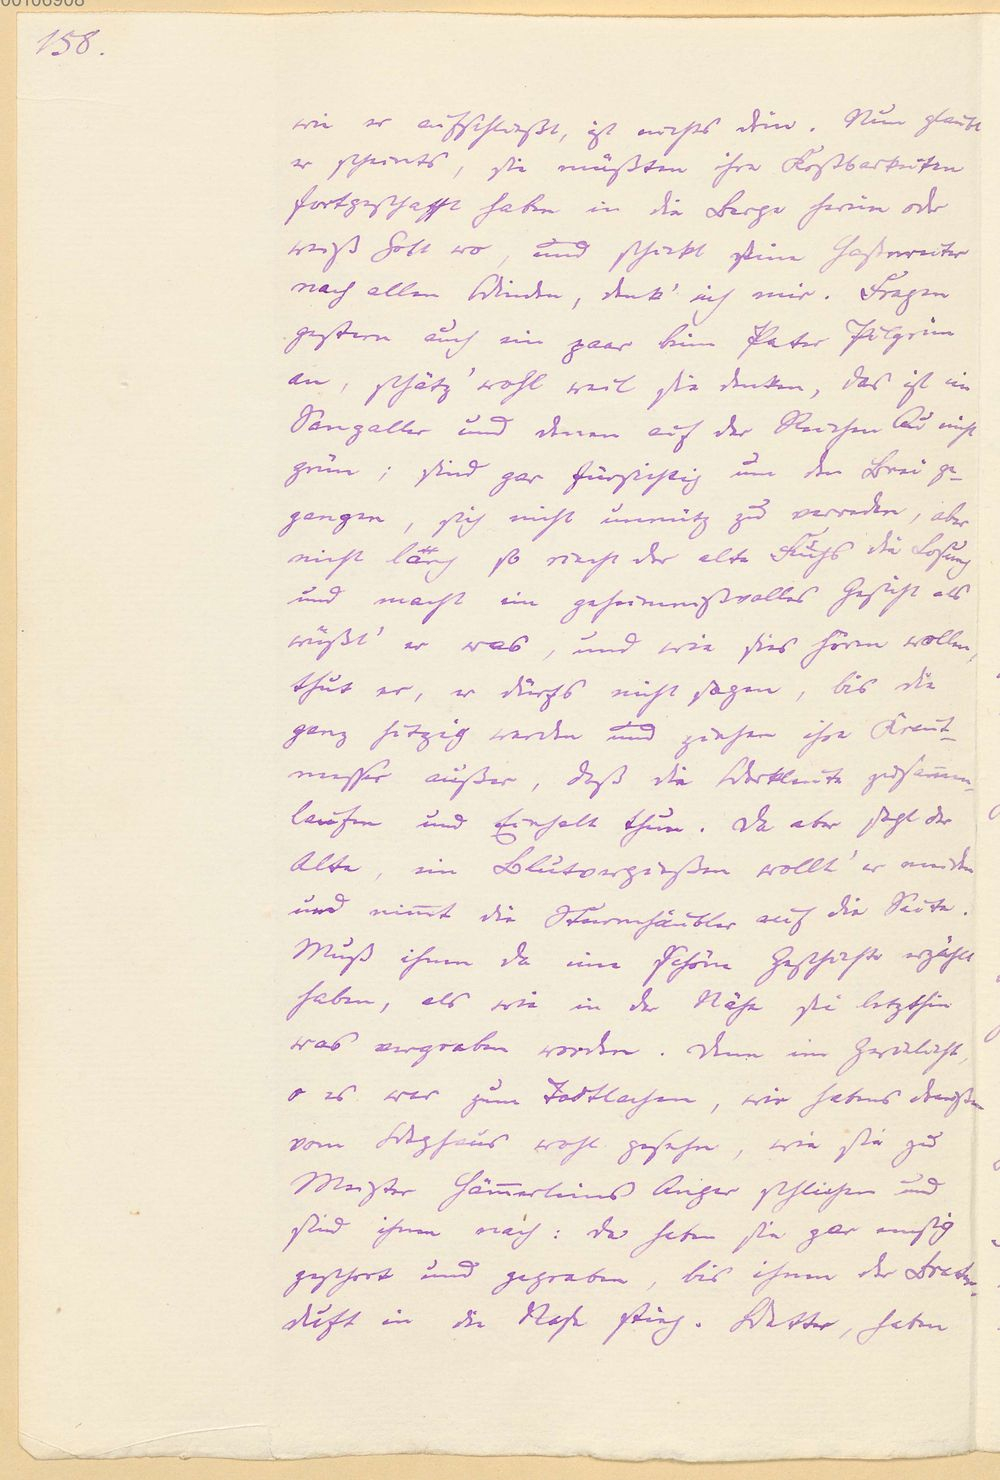 00106908
158.
wie er aufschließt, ist nichts drin. Nun glaubt
er scheints, sie müßten ihre Kostbarkeiten
fortgeschafft haben in die Berge herein oder
weiß Gott wo, und schickt seine
nach allen Winden, denk' ich mir. Fragen
gestern auch ein paar beim Pater Pilgrim
an, schätz' wohl weil sie denken, das ist ein
Sangaller und denen auf der Reichen Au nicht
grün; sind gar fürsichtig um den Brei ge-
gangen, sich nicht unnütz zu verreden, aber
nicht lang so riecht der alte Fuchs die Losung
und macht ein geheimnißvolles Gesicht als
wüßt' er was, und wie sies hören wollen,
thut er, er dürfs nicht sagen, bis die
ganz hitzig werden und ziehen ihre Kraut-
messer außer, daß die Werkleute zusammen-
laufen und Einhalt thun. Da aber sagt der
Alte, ein Blutvergießen wollt' er meiden
und nimmt die Sturmhäubler auf die Seite.
Muß ihnen da eine schöne Geschichte erzählt
haben, als wie in der Nähe sei letzthin
was vergraben worden. Denn im Zwielicht,
o es war zum Todtlachen, wir habens draußen
vom Waghaus wohl gesehn, wie sie zu
Meister Hämmerleins Anger schlichen und
sind ihnen nach: da haben sie gar emsig
geschort und gegraben, bis ihnen der Braten-
duft in die Nase stieg. Wetter, haben